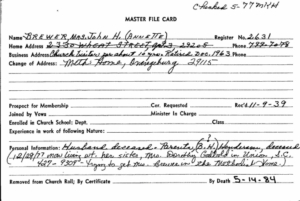 Checked 5-77 MKH
MASTER FILE CARD
Name BREWER, MRS. JOHN H. (ANNETTE) Register No. 2631
Home Address 2330 WHEAT STREET, Apt 3, 29205 Phone 799-7098
Business Address Church Visitor Retired Dec. 1963 Phone
Change of Address: Meth. Home, Orangeburg 29115
Prospect for Membership Cor. Requested Rec'd 11-9-39
Joined by Vows Minister In Charge
Enrolled in Church School: Dept. Class
Experience in work of following Nature:
Personal Information: Husband deceased - Parents, Henderson, deceased
(12/29/77 now living w/ her sister, Mrs. Dorothy in Union, S.C.
427-9307 - trying to get Mrs. Brewer in the Methodist Home.)
Removed from Church Roll; By Certificate By Death 5-14-84